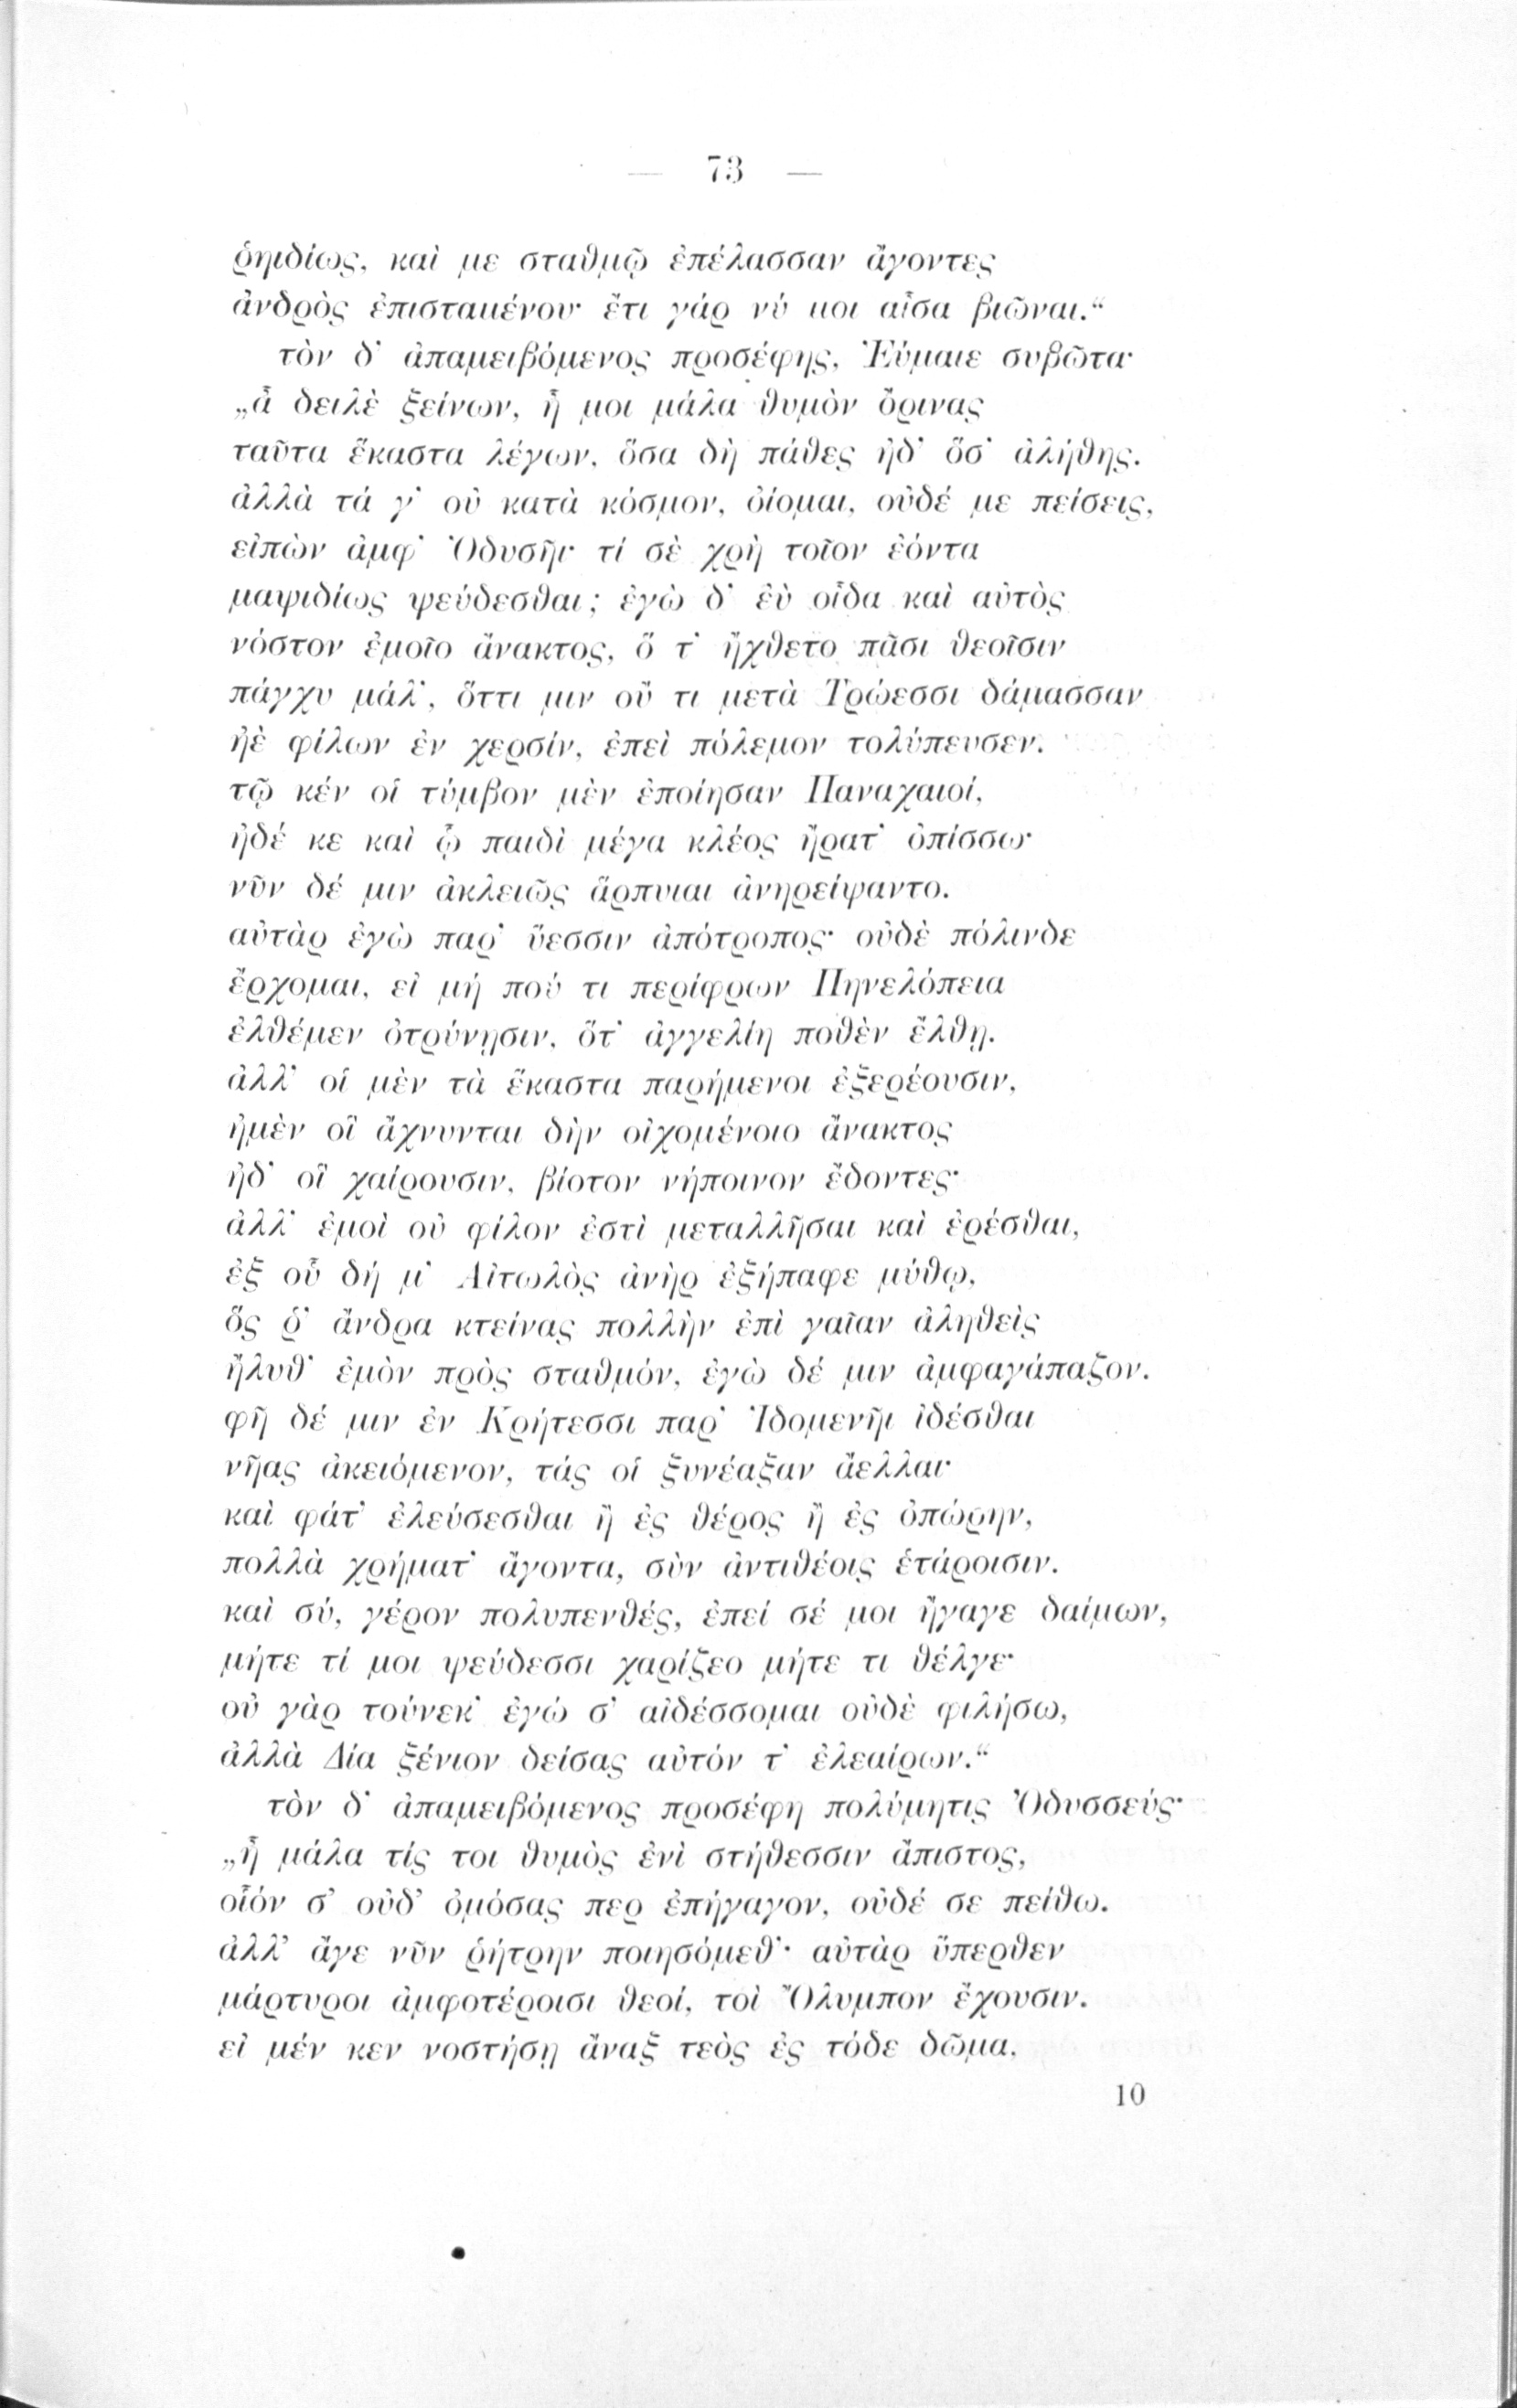 — 73 —
ῥηιδίως, καί με σταθμῷ ἐπέλασσαν ἄγοντες
ἀνδρὸς ἐπισταμένου· ἔτι γάρ νύ μοι αἶσα βιῶναι.“
τὸν δ᾽ ἀπαμειβόμενος προσέφης, Ἐύμαιε συβῶτα·
„ἆ δειλὲ ξείνων, ἦ μοι μάλα θυμὸν ὄρινας
ταῦτα ἕκαστα λέγων, ὅσα δὴ πάθες ἠδ᾽ ὅσ᾽ ἀλήθης.
ἀλλὰ τά γ᾽ οὐ κατὰ κόσμον, ὀίομαι, οὐδέ με πείσεις,
εἰπὼν ἀμφ᾽ Ὀδυσῆι· τί σὲ χρὴ τοῖον ἐόντα
μαψιδίως ψεύδεσθαι; ἐγὼ δ᾽ ἐὺ οἶδα καὶ αὐτὸς
νόστον ἐμοῖο ἄνακτος, ὅ τ᾽ ἤχθετο πᾶσι θεοῖσιν
πάγχυ μάλ᾽, ὅττι μιν οὔ τι μετὰ Τρώεσσι δάμασσαν
ἠὲ φίλων ἐν χερσίν, ἐπεὶ πόλεμον τολύπευσεν.
τῷ κέν οἱ τύμβον μὲν ἐποίησαν Παναχαιοί,
ἠδέ κε καὶ ᾧ παιδὶ μέγα κλέος ἤρατ᾽ ὀπίσσω·
νῦν δέ μιν ἀκλειῶς ἅρπυιαι ἀνηρείψαντο.
αὐτὰρ ἐγὼ παρ᾽ ὕεσσιν ἀπότροπος· οὐδὲ πόλινδε
ἔρχομαι, εἰ μή πού τι περίφρων Πηνελόπεια
ἐλθέμεν ὀτρύνῃσιν, ὅτ᾽ ἀγγελίη ποθὲν ἔλθῃ.
ἀλλ᾽ οἱ μὲν τὰ ἕκαστα παρήμενοι ἐξερέουσιν,
ἠμὲν οἳ ἄχνυνται δὴν οἰχομένοιο ἄνακτος
ἠδ᾽ οἳ χαίρουσιν, βίοτον νήποινον ἔδοντες·
ἀλλ᾽ ἐμοὶ οὐ φίλον ἐστὶ μεταλλῆσαι καὶ ἐρέσθαι,
ἐξ οὗ δή μ᾽ Αἰτωλὸς ἀνὴρ ἐξήπαφε μύθῳ,
ὅς ῥ᾽ ἄνδρα κτείνας πολλὴν ἐπὶ γαῖαν ἀληθεὶς
ἤλυθ᾽ ἐμὸν πρὸς σταθμόν, ἐγὼ δέ μιν ἀμφαγάπαζον.
φῆ δέ μιν ἐν Κρήτεσσι παρ᾽ Ἰδομενῆι ἰδέσθαι
νῆας ἀκειόμενον, τάς οἱ ξυνέαξαν ἄελλαι·
καὶ φάτ᾽ ἐλεύσεσθαι ἢ ἐς θέρος ἢ ἐς ὀπώρην,
πολλὰ χρήματ᾽ ἄγοντα, σὺν ἀντιθέοις ἑτάροισιν.
καὶ σύ, γέρον πολυπενθές, ἐπεί σέ μοι ἤγαγε δαίμων,
μήτε τί μοι ψεύδεσσι χαρίζεο μήτε τι θέλγε·
οὐ γὰρ τούνεκ᾽ ἐγώ σ᾽ αἰδέσσομαι οὐδὲ φιλήσω,
ἀλλὰ Δία ξένιον δείσας αὐτόν τ᾽ ἐλεαίρων.“
τὸν δ᾽ ἀπαμειβόμενος προσέφη πολύμητις Ὀδυσσεύς·
„ἦ μάλα τίς τοι θυμὸς ἐνὶ στήθεσσιν ἄπιστος,
οἷόν σ᾽ οὐδ᾽ ὀμόσας περ ἐπήγαγον, οὐδέ σε πείθω.
ἀλλ᾽ ἄγε νῦν ῥήτρην ποιησόμεθ᾽· αὐτὰρ ὕπερθεν
μάρτυροι ἀμφοτέροισι θεοί, τοὶ Ὄλυμπον ἔχουσιν.
εἰ μέν κεν νοστήσῃ ἄναξ τεὸς ἐς τόδε δῶμα,
10